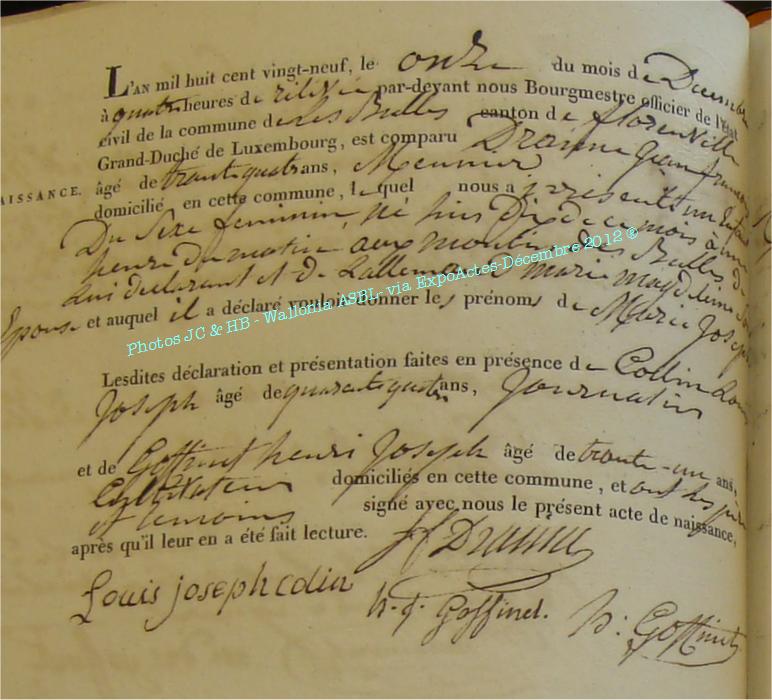 L'AN mil huit cent vingt-neuf, le onze du mois de Décembre
à quatre heures de relevée par-devant nous Bourgmestre officier de l'état
civil de la commune des Bulles canton de florenville
Grand-Duché de Luxembourg, est comparu Drainne jean françois
AISSANCE. âgé de trente quatre ans, Meunier
domicilié en cette commune, lequel nous a présenté un Enfant
Du Sexe feminin, né hier Dix de ce mois à une
heure du matin aux moulin des Bulles de
Lui declarant et de Lallemand marie magdelaine Son
Epouse et auquel il a déclaré vouloir donner les prénoms de Marie Joseph
Lesdites déclaration et présentation faites en présence de Collin Louis
Joseph âgé de quarante quatre ans, Journalier
et de Goffinet henri Joseph âgé de trente-un ans,
Cultivateur domiciliés en cette commune, et ont les père
et temoins signé avec nous le présent acte de naissance,
après qu'il leur en a été fait lecture.
jf Drainne
Louis joseph colin h. j. Goffinet. h: Goffinet
Photos JC & HB - Wallonia ASBL- via ExpoActes-Décembre 2012 ®